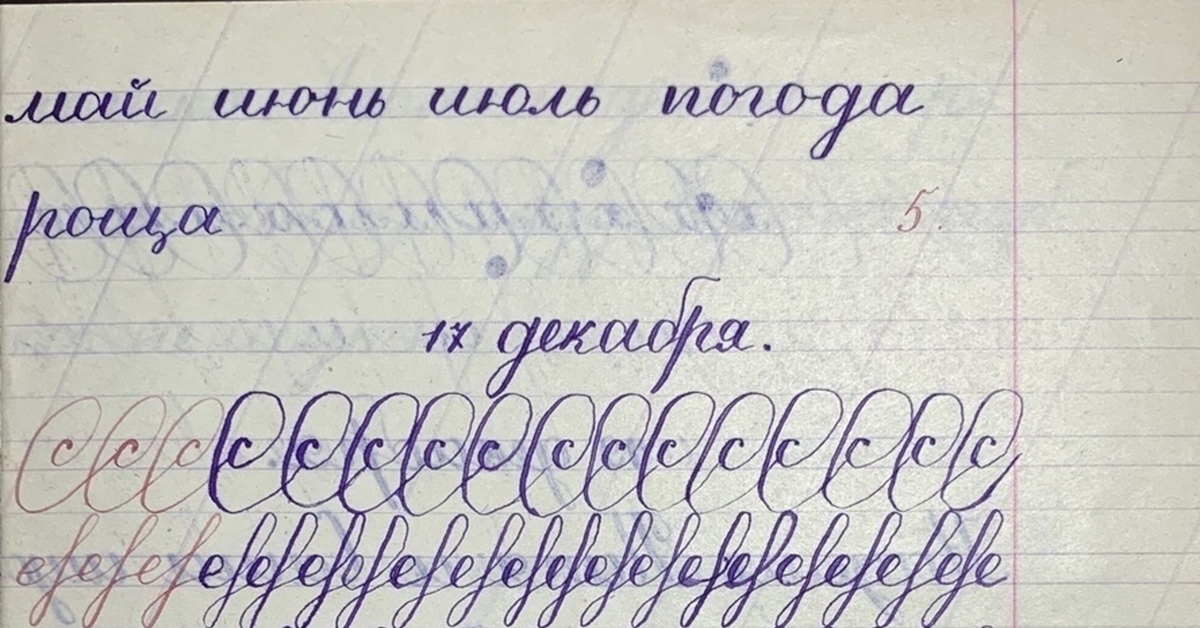 май июнь июль погода
роща 5.
17 декабря.
С с С с С с С с С с С с С с С с С с С с С с С с С с С с С с